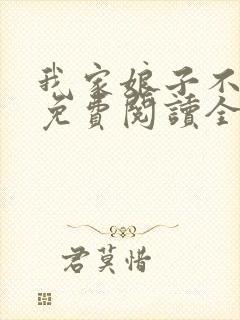 我家娘子不
免費閱讀全
君莫惜